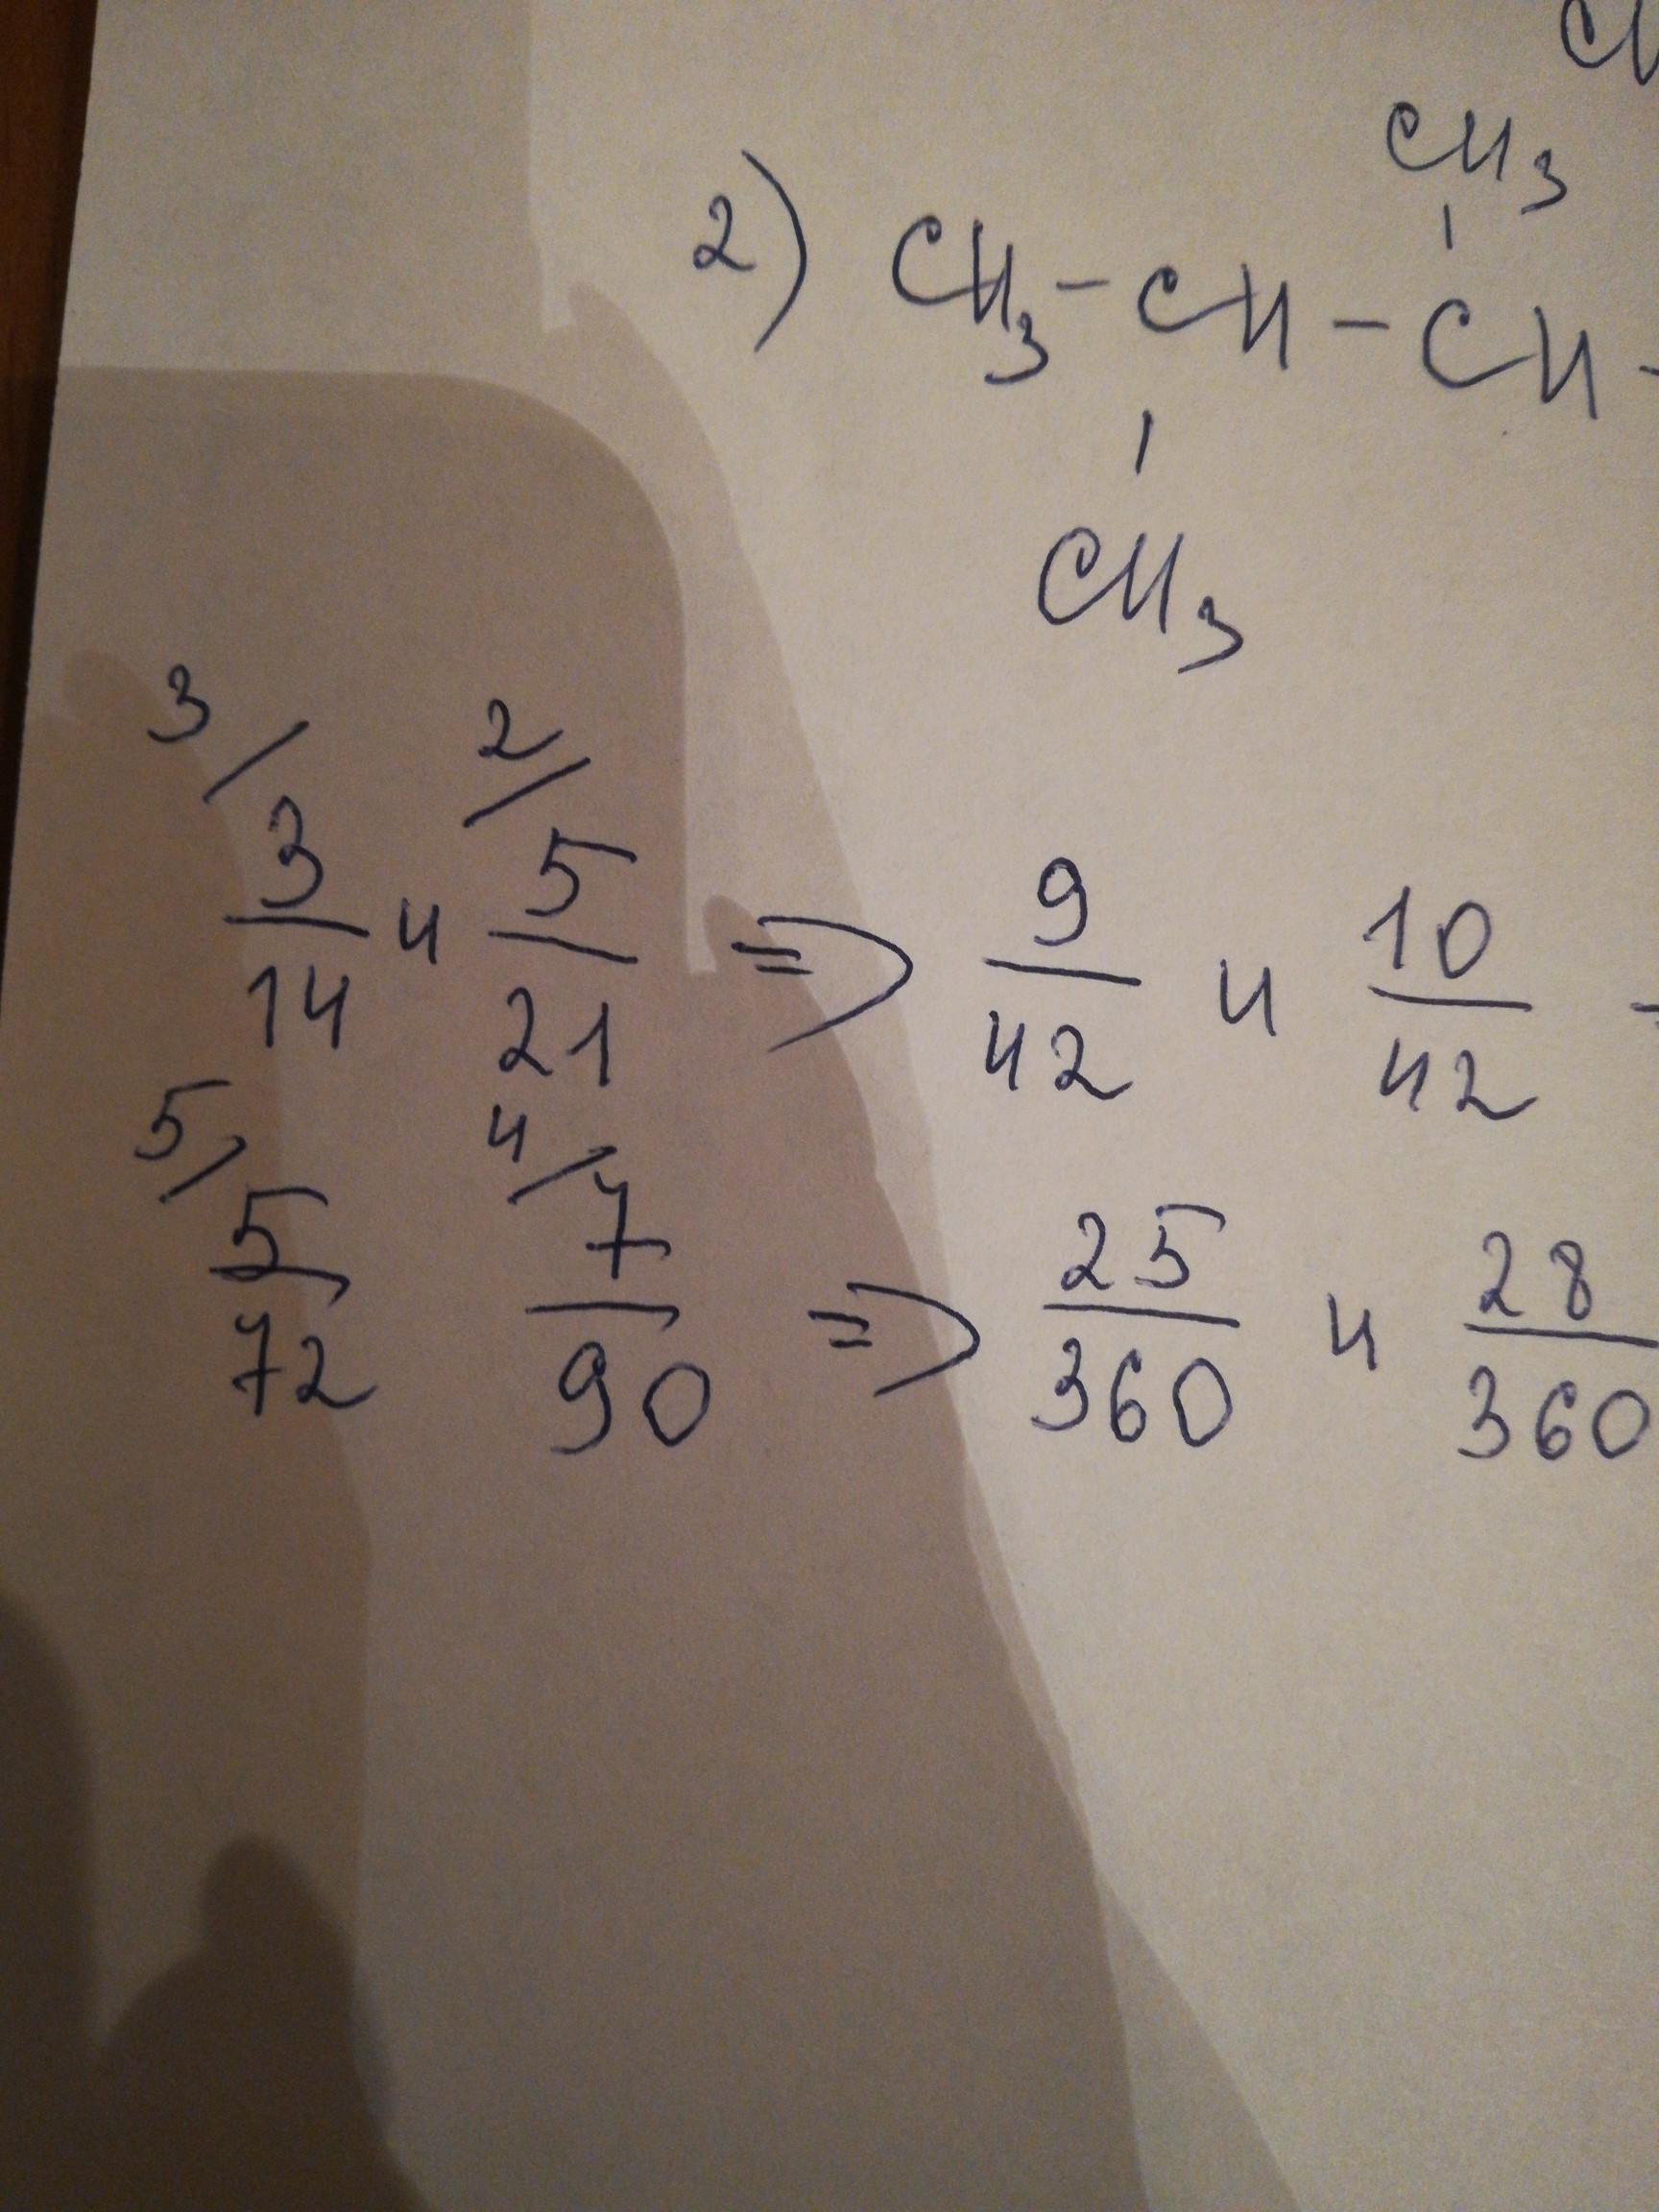 CH
CH₃
2) CH₃ - CH - CH -
CH₃
3/ 2/
3/14 и 5/21 => 9/42 и 10/42 -
5/ 4/
5/72 7/90 => 25/360 и 28/360